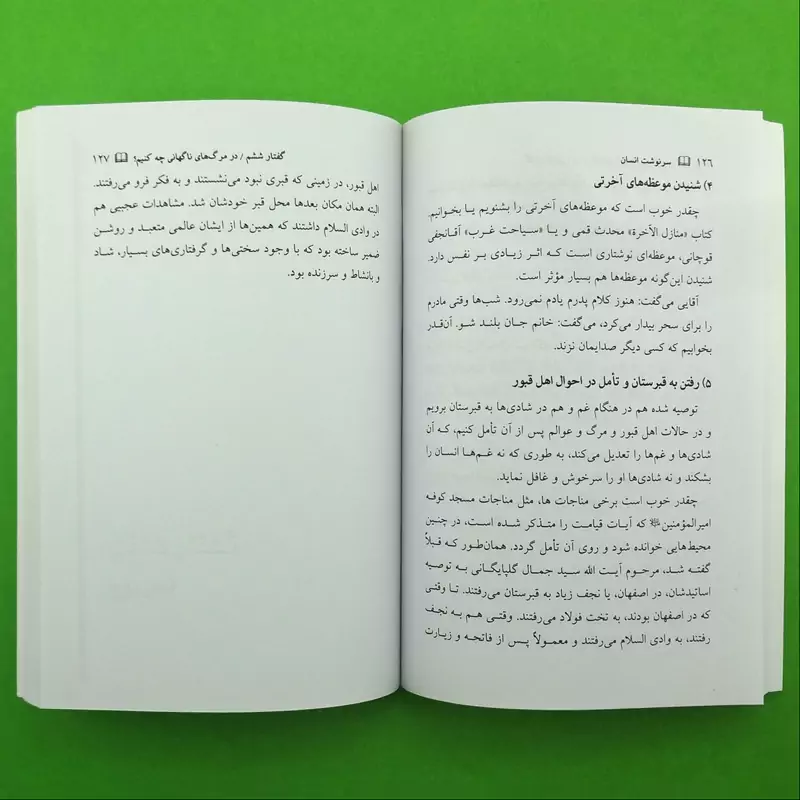 ۱۲۶ سرنوشت انسان
۴) شنیدن موعظه‌های آخرتی
چقدر خوب است که موعظه‌های آخرتی را بشنویم یا بخوانیم.
کتاب «منازل الآخرة» محدث قمی و یا «سیاحت غرب» آقانجفی
قوچانی، موعظه‌ای نوشتاری است که اثر زیادی بر نفس دارد.
شنیدن این‌گونه موعظه‌ها هم بسیار مؤثر است.
آقایی می‌گفت: هنوز کلام پدرم یادم نمی‌رود. شب‌ها وقتی مادرم
را برای سحر بیدار می‌کرد، می‌گفت: خانم جان بلند شو. آن‌قدر
بخوابیم که کسی دیگر صدایمان نزند.
۵) رفتن به قبرستان و تأمل در احوال اهل قبور
توصیه شده هم در هنگام غم و هم در شادی‌ها به قبرستان برویم
و در حالات اهل قبور و مرگ و عوالم پس از آن تأمل کنیم، که آن
شادی‌ها و غم‌ها را تعدیل می‌کند، به طوری که نه غم‌ها انسان را
بشکند و نه شادی‌ها او را سرخوش و غافل نماید.
چقدر خوب است برخی مناجات ها، مثل مناجات مسجد کوفه
امیرالمؤمنین که آیات قیامت را متذکر شده است، در چنین
محیط‌هایی خوانده شود و روی آن تأمل گردد. همان‌طور که قبلاً
گفته شد، مرحوم آیت الله سید جمال گلپایگانی به توصیه
اساتیدشان، در اصفهان، یا نجف زیاد به قبرستان می‌رفتند. تا وقتی
که در اصفهان بودند، به تخت فولاد می‌رفتند. وقتی هم به نجف
رفتند، به وادی السلام می‌رفتند و معمولاً پس از فاتحه و زیارت
گفتار ششم / در مرگ‌های ناگهانی چه کنیم؟ ۱۲۷
اهل قبور، در زمینی که قبری نبود می‌نشستند و به فکر فرو می‌رفتند.
البته همان مکان بعدها محل قبر خودشان شد. مشاهدات عجیبی هم
در وادی السلام داشتند که همین‌ها از ایشان عالمی متعبد و روشن
ضمیر ساخته بود که با وجود سختی‌ها و گرفتاری‌های بسیار، شاد
و بانشاط و سرزنده بود.